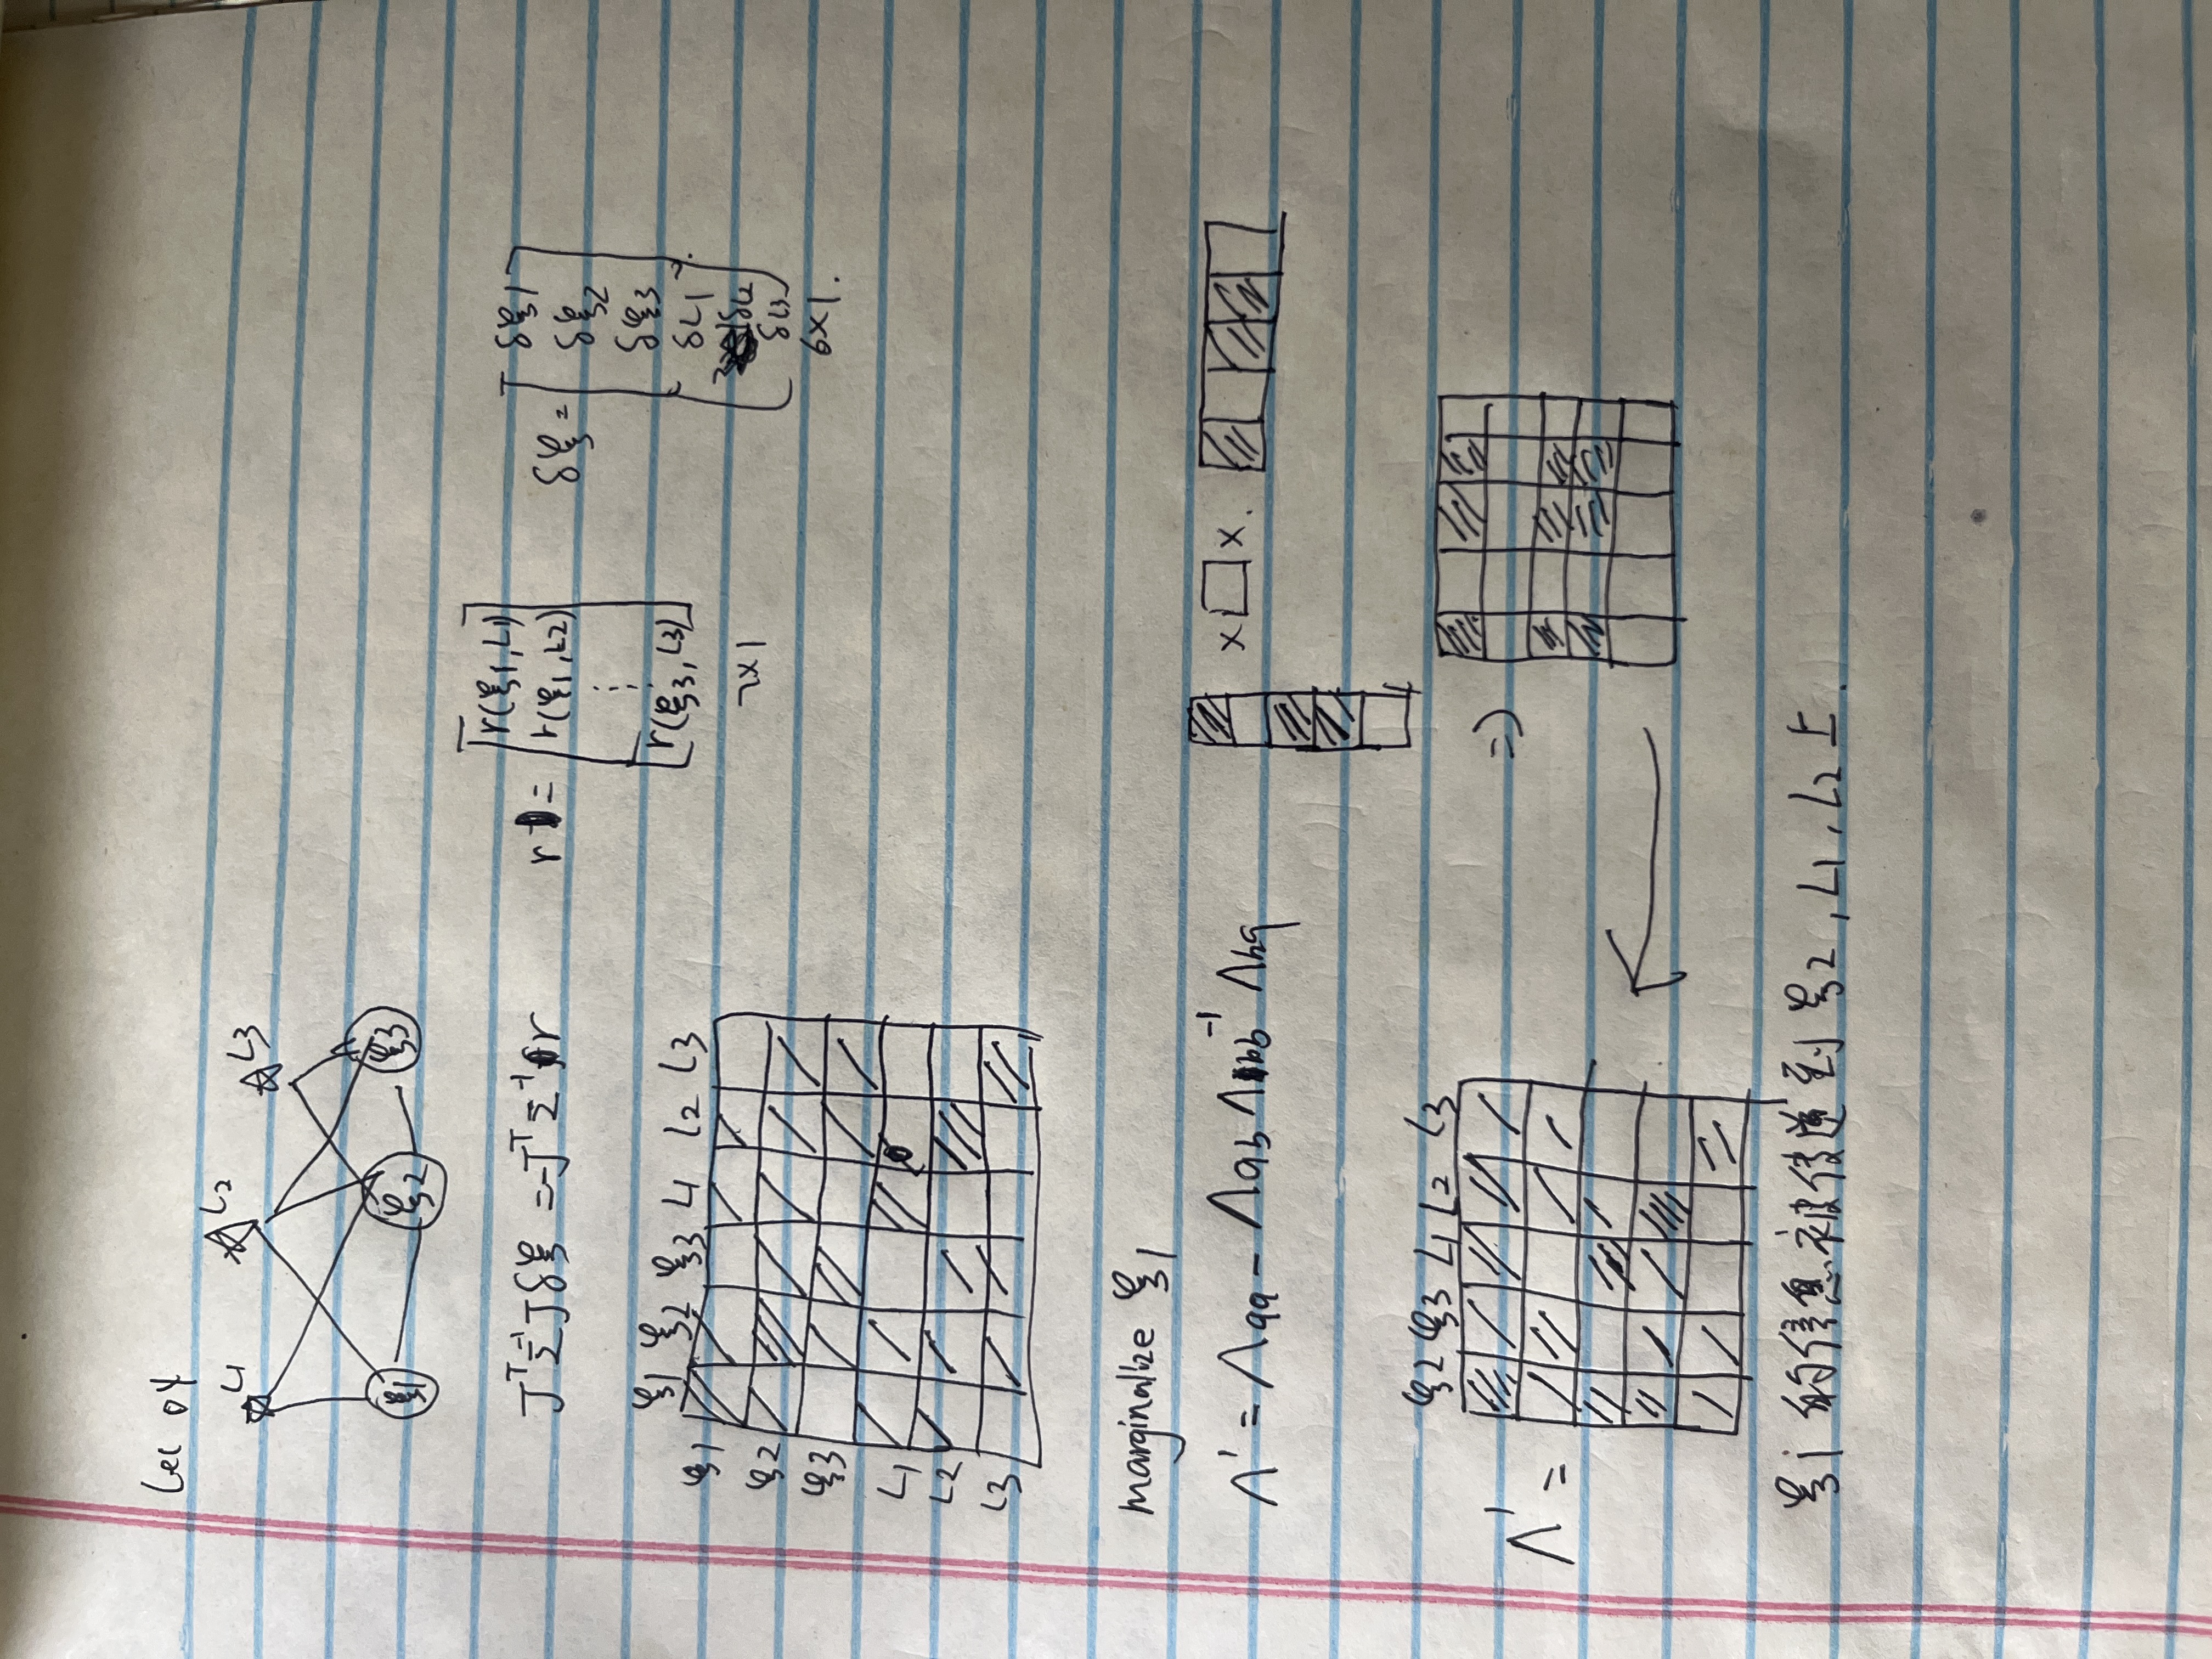 Lec 04
L1 L2 L3
ξ1 ξ2 ξ3
JᵀΣ⁻¹Jδξ = -JᵀΣ⁻¹r
r =
r(ξ1, L1)
r(ξ1, L2)
⋮
r(ξ3, L3)
7×1
δξ =
δξ1
δξ2
δξ3
δL1
δL2
δL3
6×1.
ξ1 ξ2 ξ3 L1 L2 L3
ξ1
ξ2
ξ3
L1
L2
L3
marginalize ξ1
Λ' = Λaa - Λab Λbb⁻¹ Λba
× □ ×.
ξ2 ξ3 L1 L2 L3
Λ' =
=>
ξ1 的信息被传递到 ξ2, L1, L2 上.